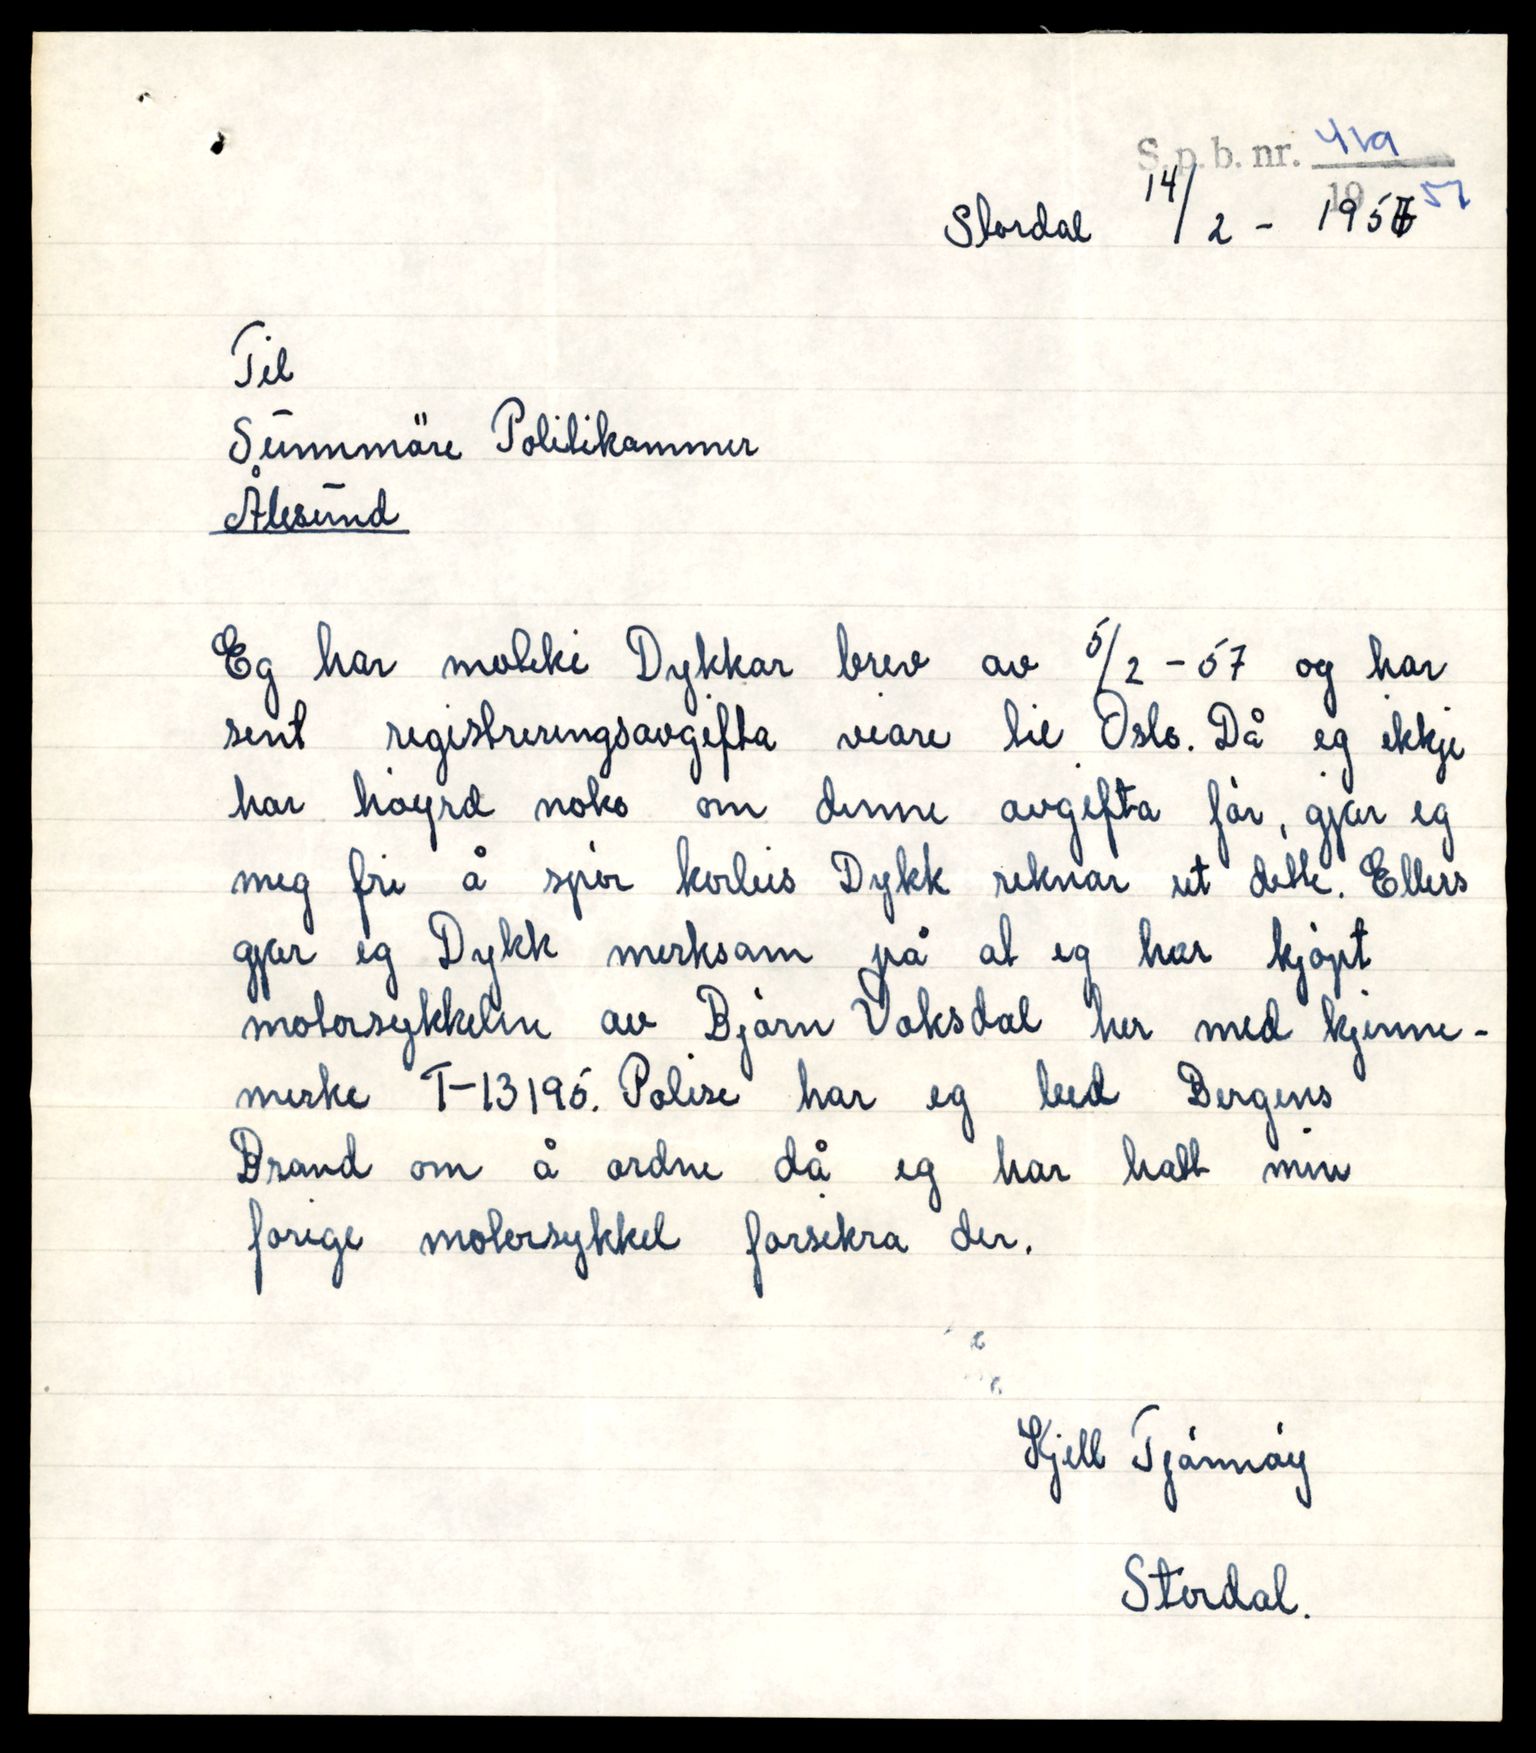 S. p. b. nr. 419
19 57
Stordal 14/2 - 1957
Til
Sunnmöre Politikammer
Ålesund
Eg har motteke Dykkar brev av 5/2 - 57 og har
sent registreringsavgifta viare til Oslo. Då eg ikkje
har høyrd noko om denne avgifta før, gjer eg
meg fri å spør korleis Dykk reknar ut dette. Ellers
gjer eg Dykk merksam på at eg har kjøpt
motorsykkelen av Bjørn Vaksdal her med kjenne-
merke T-13195. Polise har eg bed Bergens
Brand om å ordne då eg har hatt min
forige motorsykkel forsikra der.
Kjell Tjønnøy
Stordal.